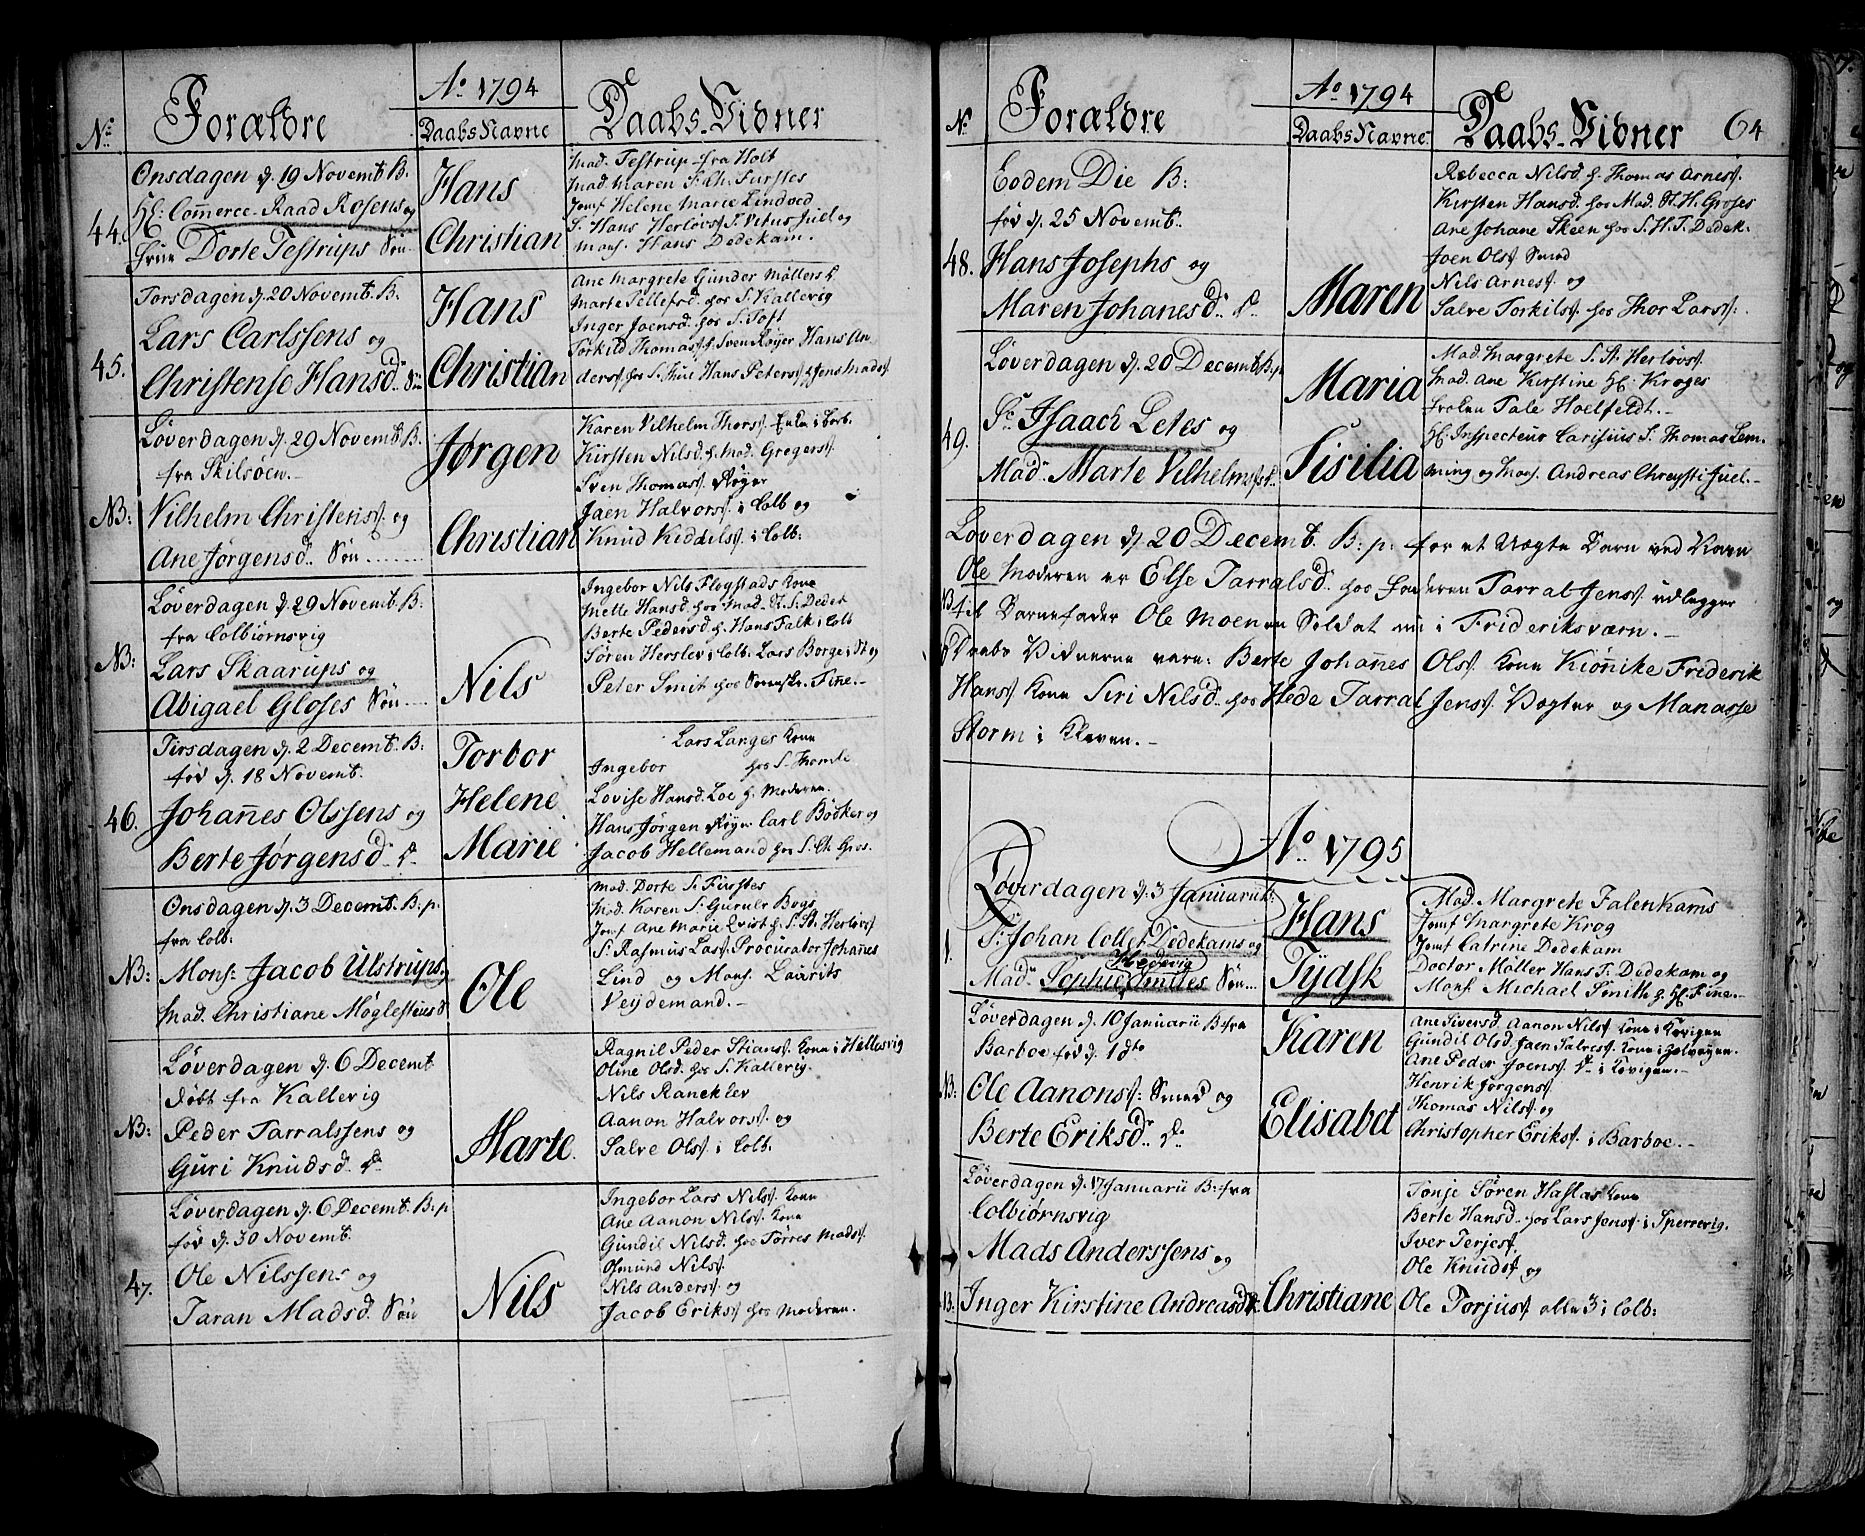 Ao 1794
No Forældre DaabsNavne Daabs-Vidner
Onsdagen d. 19 Novemb. B.
44. Hl: Commerce-Raad Rosens og
Frue Dorte Testrups Søn
Hans
Christian
Mad. Testrup fra Holt
Mad. Maren S. Ch. Furstes
Jomf. Helene Marie Lindved
S. Hans Herløvs S. Vitus Juel og
Mons. Hans Dedekam.
Torsdagen d. 20 Novemb. B.
Lars Carlssens og
45. Christense Hansd. Søn
Hans
Christian
Ane Margrete Gunder Møllers D
Marte Sellefsd. hos S. Kallevig
Inger Joensd. hos S. Toft
Torkild Thomas. h. Sven Røyer Hans An
ders. hos S. Hans Peters. Jens Mads.
Løverdagen d. 29 Novemb. B.
fra Skilsøen.
NB: Vilhelm Christens. og
Ane Jørgensd. Søn
Jørgen
Christian
Karen Vilhelm Thors. Enke i Colb.
Kirsten Nilsd. h. Mad. Gregers.
Sven Thomas. Røyer
Jaen Halvors. i Colb og
Knud Keddels. i Colb:
Løverdagen d. 29 Novemb. B.
fra Colbiørnsvig
NB: Lars Skaarups og
Abigael Gloses Søn
Nils
Ingebor Nils Flogstads Kone
Melle Hansd. hos Mad. K. S. Dedek
Berte Pedersd. h. Hans Falk i Colb
Søren Herslev i Colb. Lars Borge i St og
Peter Smit hos Sorenskr. Finne.
Tirsdagen d. 2 Decemb. B:
fød d. 18 Novemb.
46. Johannes Olssens og
Berte Jørgensd. D.
Torbor
Helene
Marie
Lars Langes Kone
Ingebor hos S. Thomle
Lovise Hansd. Loe h. Moderen.
Hans Jørgen Røyn. Carl Bödker og
Jacob Hellemand hos S. Ch. Gros.
Onsdagen d. 3 Decemb. B. p.
fra Colb.
NB: Mons: Jacob Ulstrups
Mad. Christiane Møglestues S
Ole
Mad. Dorte S. Firstes
Mad. Karen S. Guruler Bogs
Jomf Ane Marie Qvist h. S. St. Herløvs
S. Rasmus Las. Procurator Johanes
Lind og Mons. Laurits
Veydemand.
Løverdagen d. 6 Decemb.
døbt fra Kallevig
NB: Peder Tarralssens og
Guri Knudsd. D.
Marte
Ragnil Peder Stians. Kone i Hellesvig
Oline Olsd. hos S. Kallevig.
Nils Raneklev
Aanon Halvors. og
Salve Ols. i Colb.
Løverdagen d. 6 Decemb. B. p
fød d. 30 Novemb.
47. Ole Nilssens og
Taran Madsd. Søn
Nils
Ingebor Lars Nils. Kone
Ane Aanon Nils. Kone
Gundil Nilsd. hos Tørres Mads.
Osmund Nils.
Nils Anders. og
Jacob Eriks. hos Moderen.
Ao 1794
No Forældre DaabsNavne Daabs-Vidner 64
Eodem Die B:
fød d. 25 Novemb.
48. Hans Josephs og
Maren Johanesd. D.
Maren
Rebecca Nilsd. h. Thomas Arnes.
Kirsten Hansd. hos Mad. St. H. Groses
Ane Johane Skeen hos S. H. T. Dedek.
Joen Ols. Smed
Nils Arnes. og
Salve Torkils. hos Thor Lars.
Løverdagen d. 20 Decemb. B. p
49. Sr. Isaach Letes og
Mad. Marte Vilhelms. D.
Maria
Sisilia
Mad. Margrete S. St. Herløvs
Mad. Ane Kirstine Hl: Kroges
Frølen Tale Hoelfeldt.
Hl. Inspecteur Carisius S. Thomas Lem-
ming og Mons. Andreas Chreysti Juel.
Løverdagen d. 20 Decemb. B: p: for et Uægte Barn ved Navn
Ole Moderen er Else Tarralsd. hos Faderen Tarral Jens. udlegger
til Barnefader Ole Moen en Soldat nu i Frideriksværn.
Daabs Vidnerne vare: Berte Johannes Ols. Kone Kiønnike Frederik
Hans. Kone Siri Nilsd. hos Hede Tarral Jens. Vogter og Manasse
Storm i Kleven.
Ao 1795
Løverdagen d. 3 Januarii
1. Sr. Johan Collet Dedekams og
Hedevig
Mad. Sophie Smittes Søn
Hans
Tydsk
Mad. Margrete Falenkams
Jomf Margrete Krog
Jomf Catrine Dedekam
Doctor Møller Hans T. Dedekam og
Mons. Michael Smith h. Hl. Fine.
Løverdagen d. 10 Januarii B. fra
Barboe fød d. 1 dto
NB: Ole Aanons: Smed og
Berte Eriksd. D.
Karen
Elisabet
Ane Siversd. Aanon Nils. Kone i Kevigen
Gundil Olsd. Jaen Salves. Kone i Holvigen.
Ane Peder Joens. D. i Kevigen.
Henrik Jørgens.
Thomas Nils. og
Christopher Eriks. i Barboe.
Løverdagen d. 17 Januarii B. fra
Colbiørnsvig
Mads Anderssens og
NB. Inger Kirstine Andreasd. D.
Christiane
Tonje Søren Haslas Kone
Berte Hansd. hos Lars Jens. i Sperrevig.
Iver Terjes.
Ole Knuds. og
Ole Torjus. alle 3 i Colb: